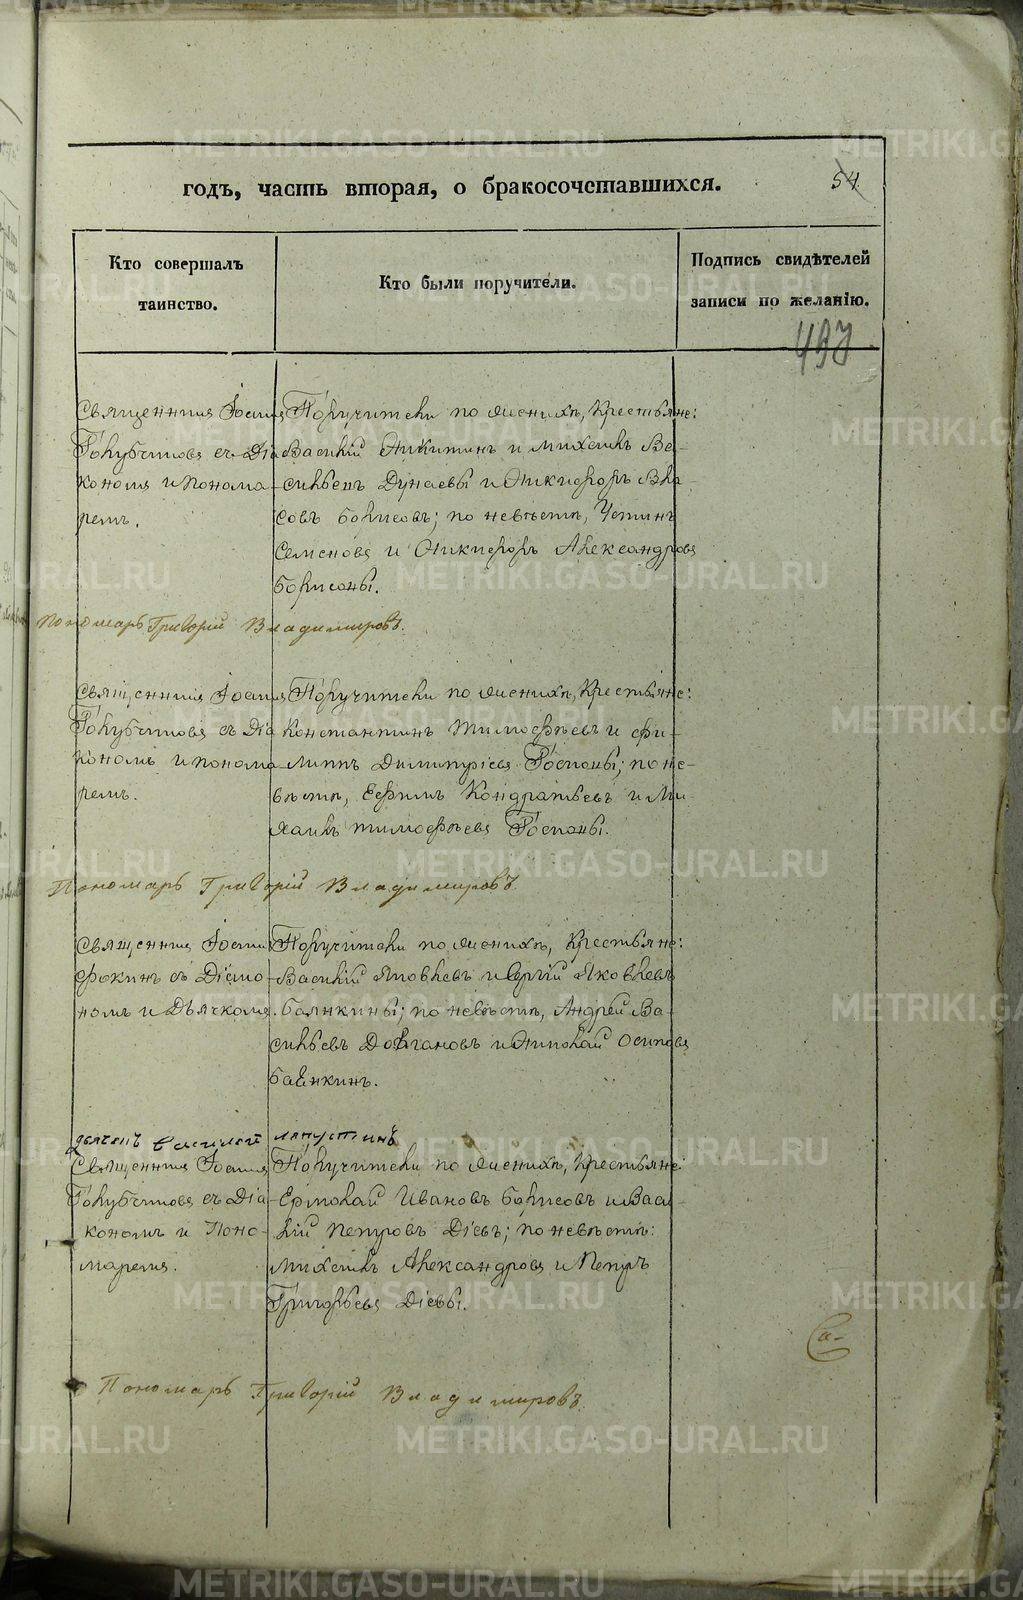 годъ, часть вторая, о бракосочетавшихся.
54
Кто совершалъ
таинство.
Кто были поручители.
Подпись свидѣтелей
записи по желанію.
497
Священникъ Іоаннъ
Голубчиковъ съ Діа-
кономъ и понома-
ремъ.
Поручители по женихѣ, Крестьяне:
Василій Никитинъ и Михаилъ Ва-
сильевъ Дунаевы и Никифоръ Вла-
совъ Борисовъ; по невѣстѣ, Устинъ
Семеновъ и Никифоръ Александровъ
Борисовы.
Пономарь Григорій Владимировъ.
Священникъ Іоаннъ
Голубчиковъ съ Діа-
кономъ и понома-
ремъ.
Поручители по женихѣ, Крестьяне:
Константинъ Тимофѣевъ и Фи-
липпъ Димитріевъ; по не-
вѣстѣ, Ефимъ Кондратьевъ и Ми-
хаилъ Тимофѣевъ
Пономарь Григорій Владимировъ.
Священникъ Іоаннъ
Фокинъ съ Діако-
номъ и Дьячкомъ.
Поручители по женихѣ, Крестьяне:
Василій Яковлевъ и Сергій Яковлевъ
по невѣстѣ, Андрей Ва-
сильевъ и Николай Осиповъ
дьячекъ Василей
Священникъ Іоаннъ
Голубчиковъ съ Діа-
кономъ и Поно-
маремъ.
Поручители по женихѣ, Крестьяне
Ермолай Ивановъ Борисовъ и Васи-
лій Петровъ Діевъ; по невѣстѣ:
Михаилъ Александровъ и Петръ
Григорьевъ Діевы.
Пономарь Григорій Владимировъ.
METRIKI.GASO-URAL.RU